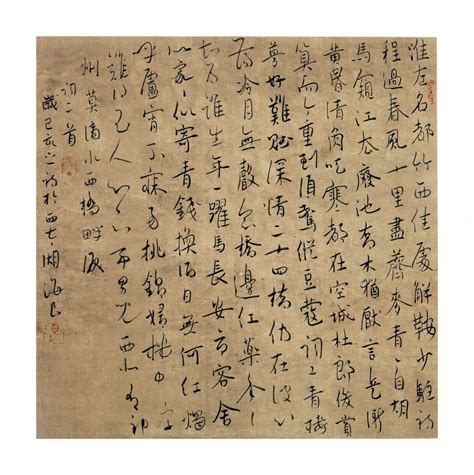 淮左名都竹西佳處解鞍少駐初
程過春風十里盡薺麥青青自胡
馬窺江去廢池喬木猶厭言兵漸
黃昏清角吹寒都在空城杜郎俊賞
算而今重到須驚縱豆蔻詞工青樓
夢好難賦深情二十四橋仍在波心
蕩冷月無聲念橋邊紅藥年年
知為誰生年年躍馬長安市客舍
似家家似寄青錢換酒日無何紅燭
呼盧宵不寐易挑錦婦機中字
難得玉人心下事男兒西北有神
州莫滴水西橋畔淚
詞二首
歲己亥之於西湖海